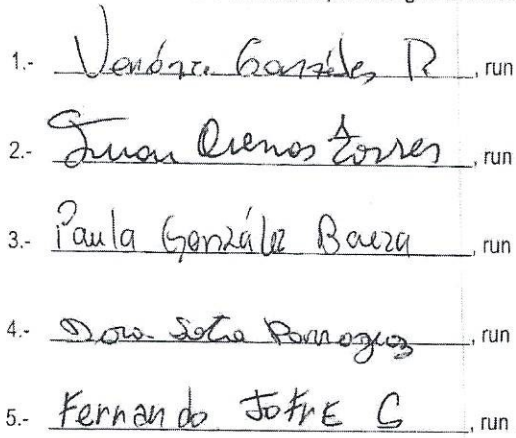 1.- Verónica González R, run
2.- Juan Orenos Torres, run
3.- Paula González Baeza, run
4.- Dora Soto, run
5.- Fernando JoFrE C, run